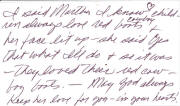 I said Martha I know child-
ren always love red cowboy boots
her face lit up - she said yes
that what I'll do & so it was
- they loved their red cow-
boy boots. - May God always
keep her love for you - in your hearts